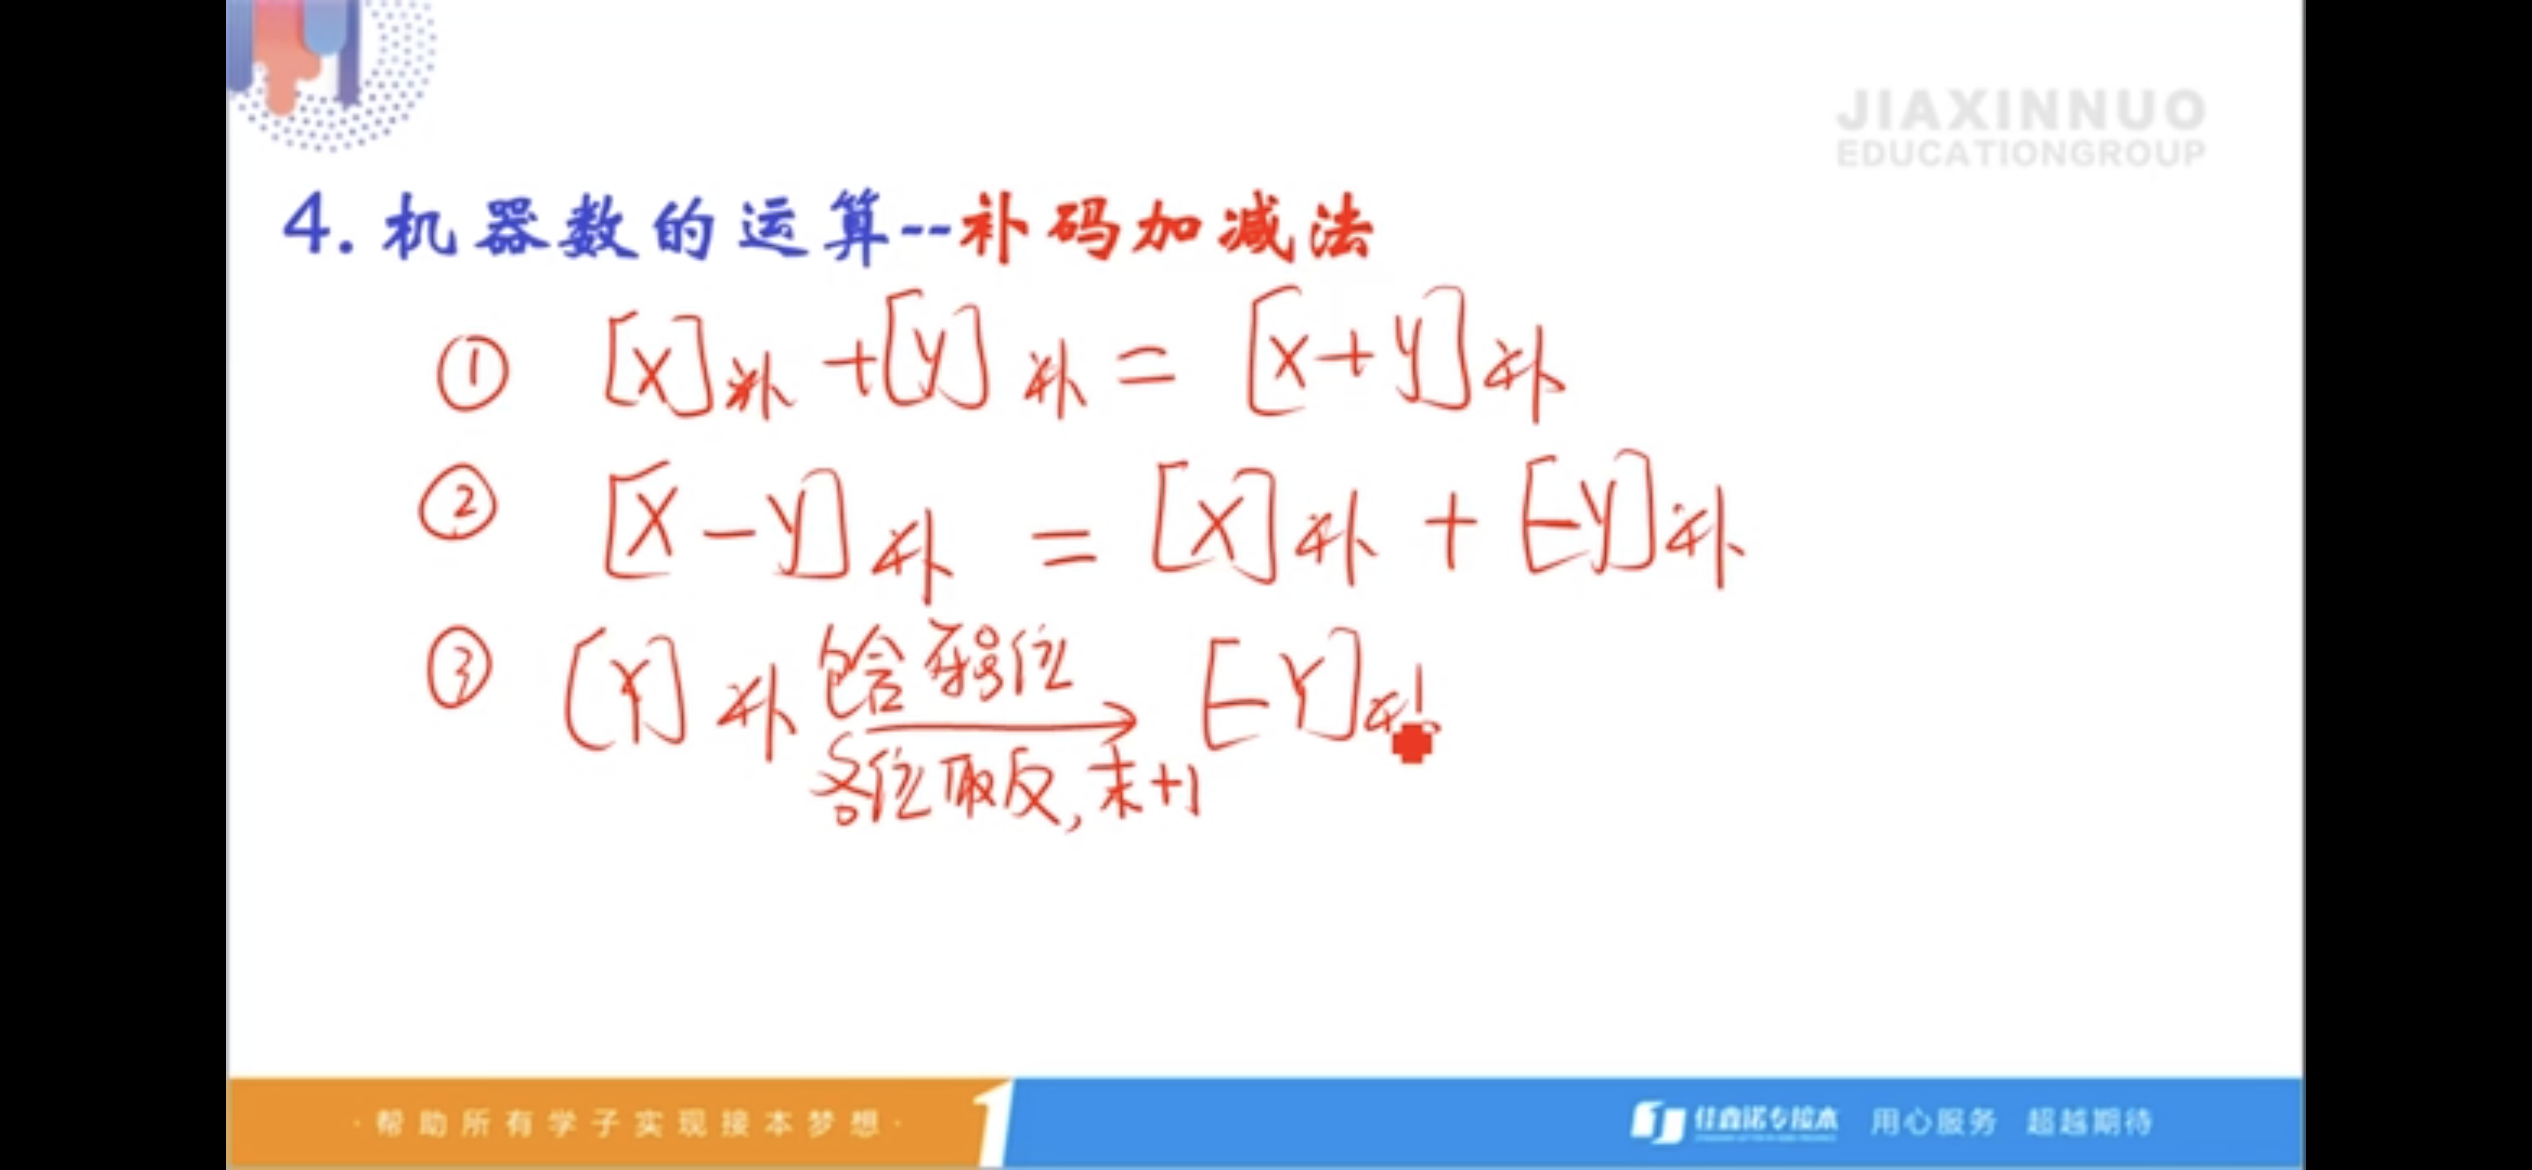 JIAXINNUO
EDUCATIONGROUP
4. 机器数的运算--补码加减法
① [X]补 + [Y]补 = [X+Y]补
② [X-Y]补 = [X]补 + [-Y]补
③ [Y]补 包含符号位 → [-Y]补
各位取反, 末+1
·帮助所有学子实现接本梦想·
佳鑫诺专接本 用心服务 超越期待